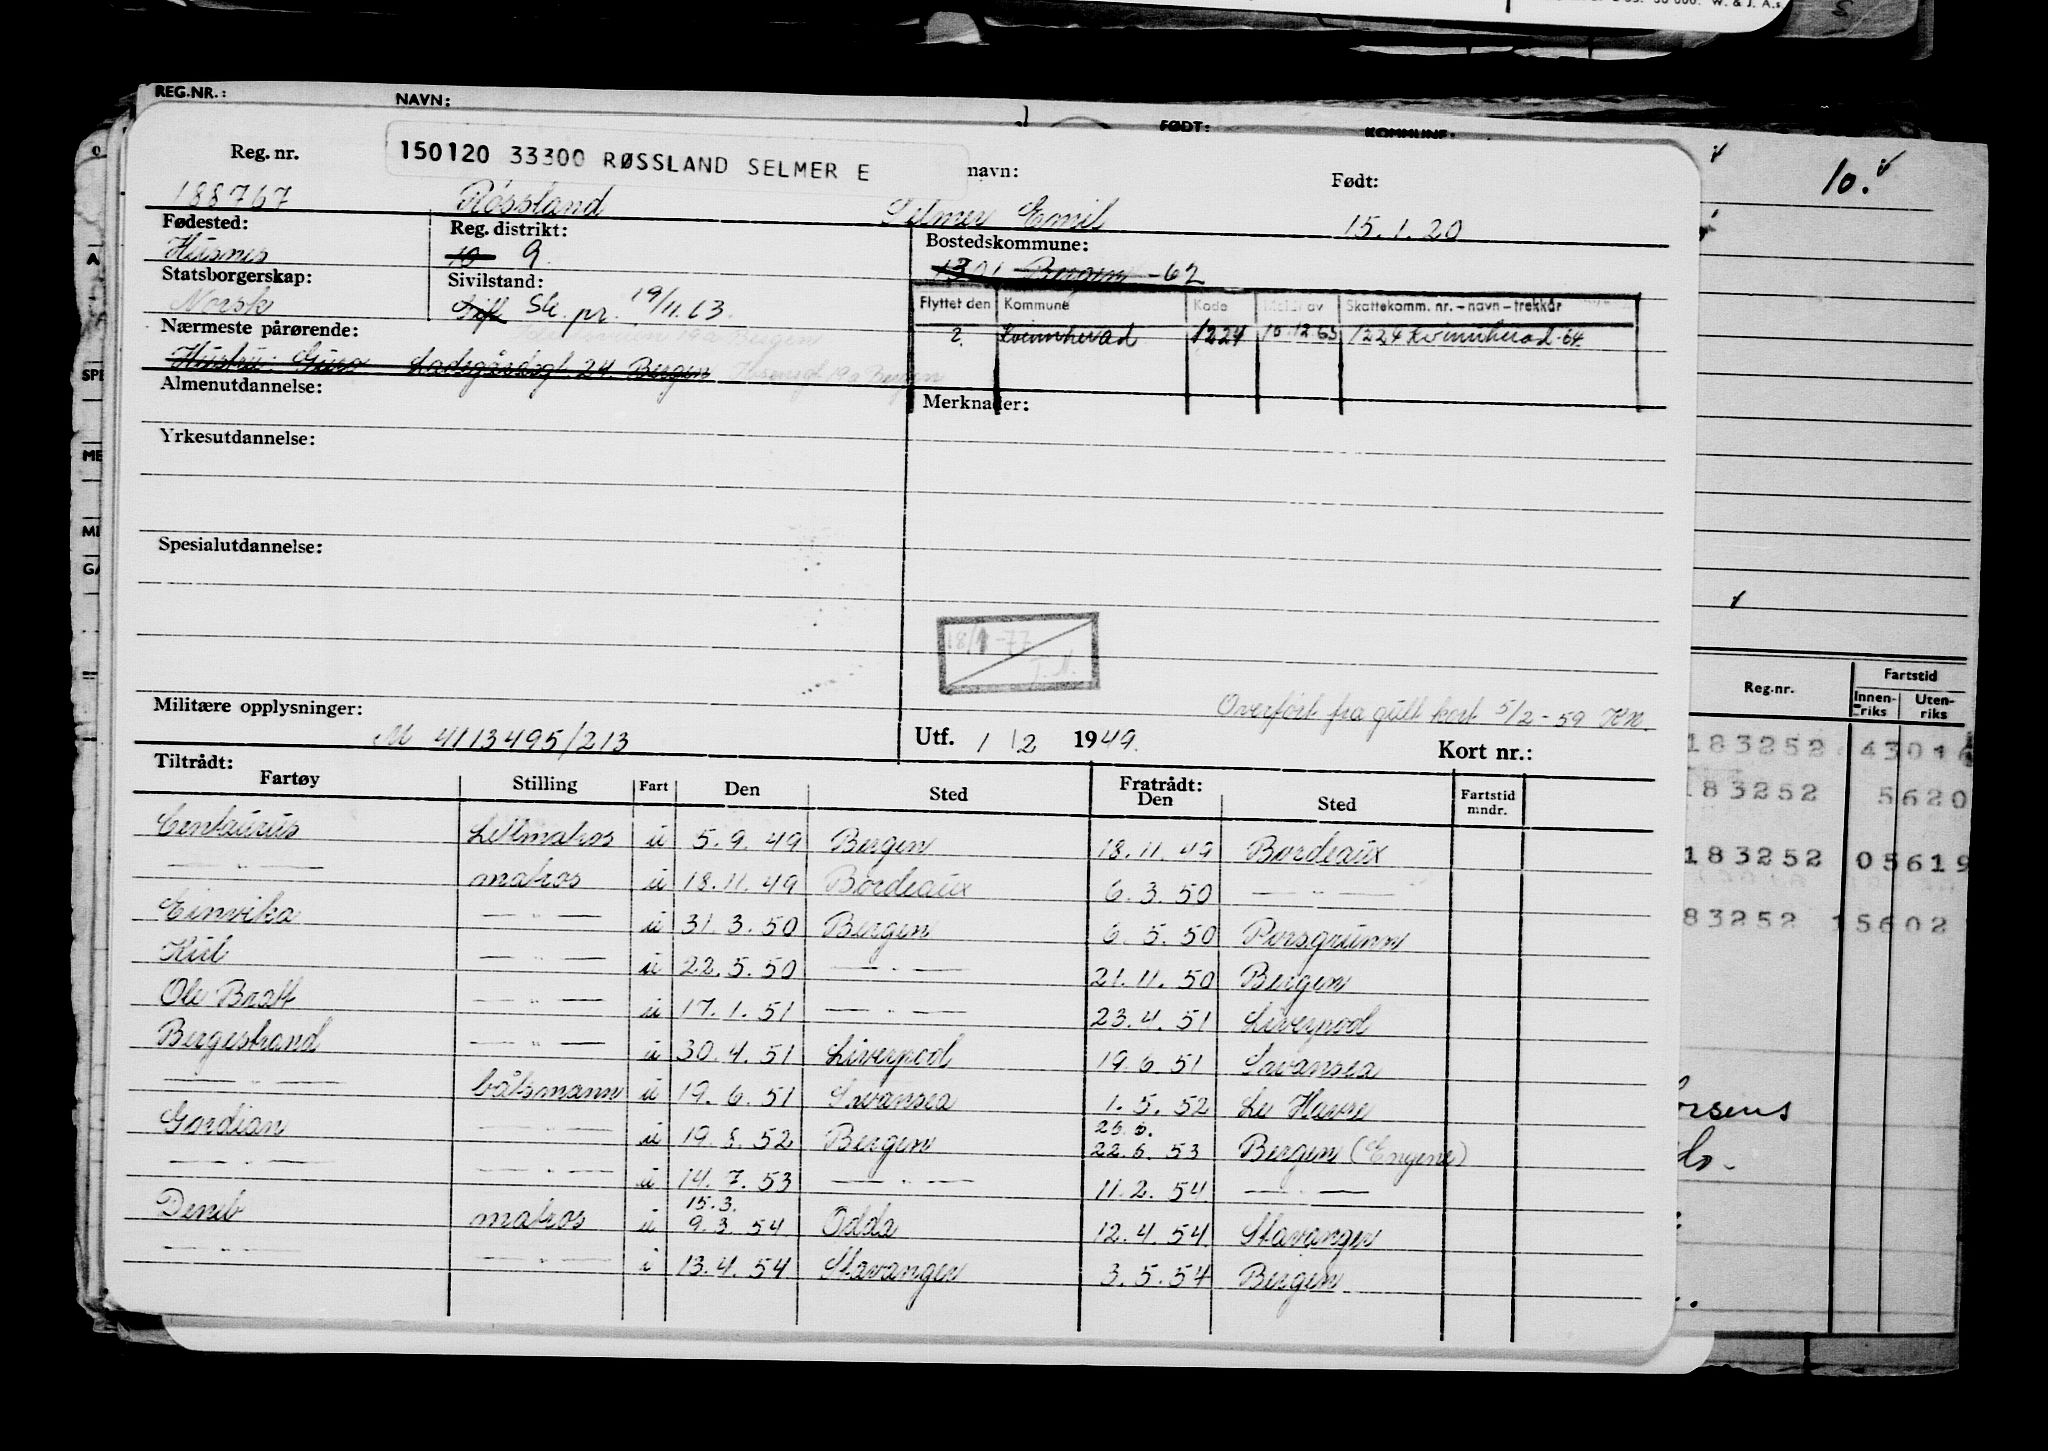 W. & J. A.s
REG.NR.: NAVN: FØDT: KOMMUNE:
10.
150120 33300 RØSSLAND SELMER E
Reg. nr. navn: Født:
188767 Røssland Selmer Emil 15.1.20
Fødested: Reg. distrikt: Bostedskommune:
Husnes 10 9 1301 Bergen -62
Statsborgerskap: Sivilstand:
Norsk Gift Sk. pr. 19/11.63.
Flyttet den Kommune Kode Meld. av Skattekomm. nr. – navn – trekkår
?. Kvinnherad 1224 10.12.63 1224 Kvinnherad-64
Nærmeste pårørende:
Hustru: Guro Ladegårdsgt. 24. Bergen
Almenutdannelse: Merknader:
Yrkesutdannelse:
Spesialutdannelse:
18/1-77
T.M.
Overført fra gult kort 5/2-59 KN.
Militære opplysninger:
M 4113495/213 Utf. 1/2 1949. Kort nr.:
Tiltrådt: Fratrådt:
Fartøy Stilling Fart Den Sted Den Sted Fartstid mndr.
Centaurus Lettmatros u 5.9.49 Bergen 18.11.49 Bordeaux
— " — matros u 18.11.49 Bordeaux 6.3.50 — " —
Einvika — " — u 31.3.50 Bergen 6.5.50 Porsgrunn
Kiel — " — u 22.5.50 — " — 21.11.50 Bergen
Ole Bratt — " — u 17.1.51 — " — 23.4.51 Liverpool
Bergestrand — " — u 30.4.51 Liverpool 19.6.51 Swansea
— " — båtsmann u 19.6.51 Swansea 1.5.52 Le Havre
26.6.
Gordian — " — u 19.8.52 Bergen 22.6.53 Bergen (Engene)
— " — — " — u 14.7.53 — " — 11.2.54 — " —
15.3.
Deneb matros u 9.3.54 Odda 12.4.54 Stavanger
— " — — " — i 13.4.54 Stavanger 3.5.54 Bergen
Reg.nr. Fartstid
Innenriks Utenriks
183252 4301
183252 5620
183252 05619
83252 15602